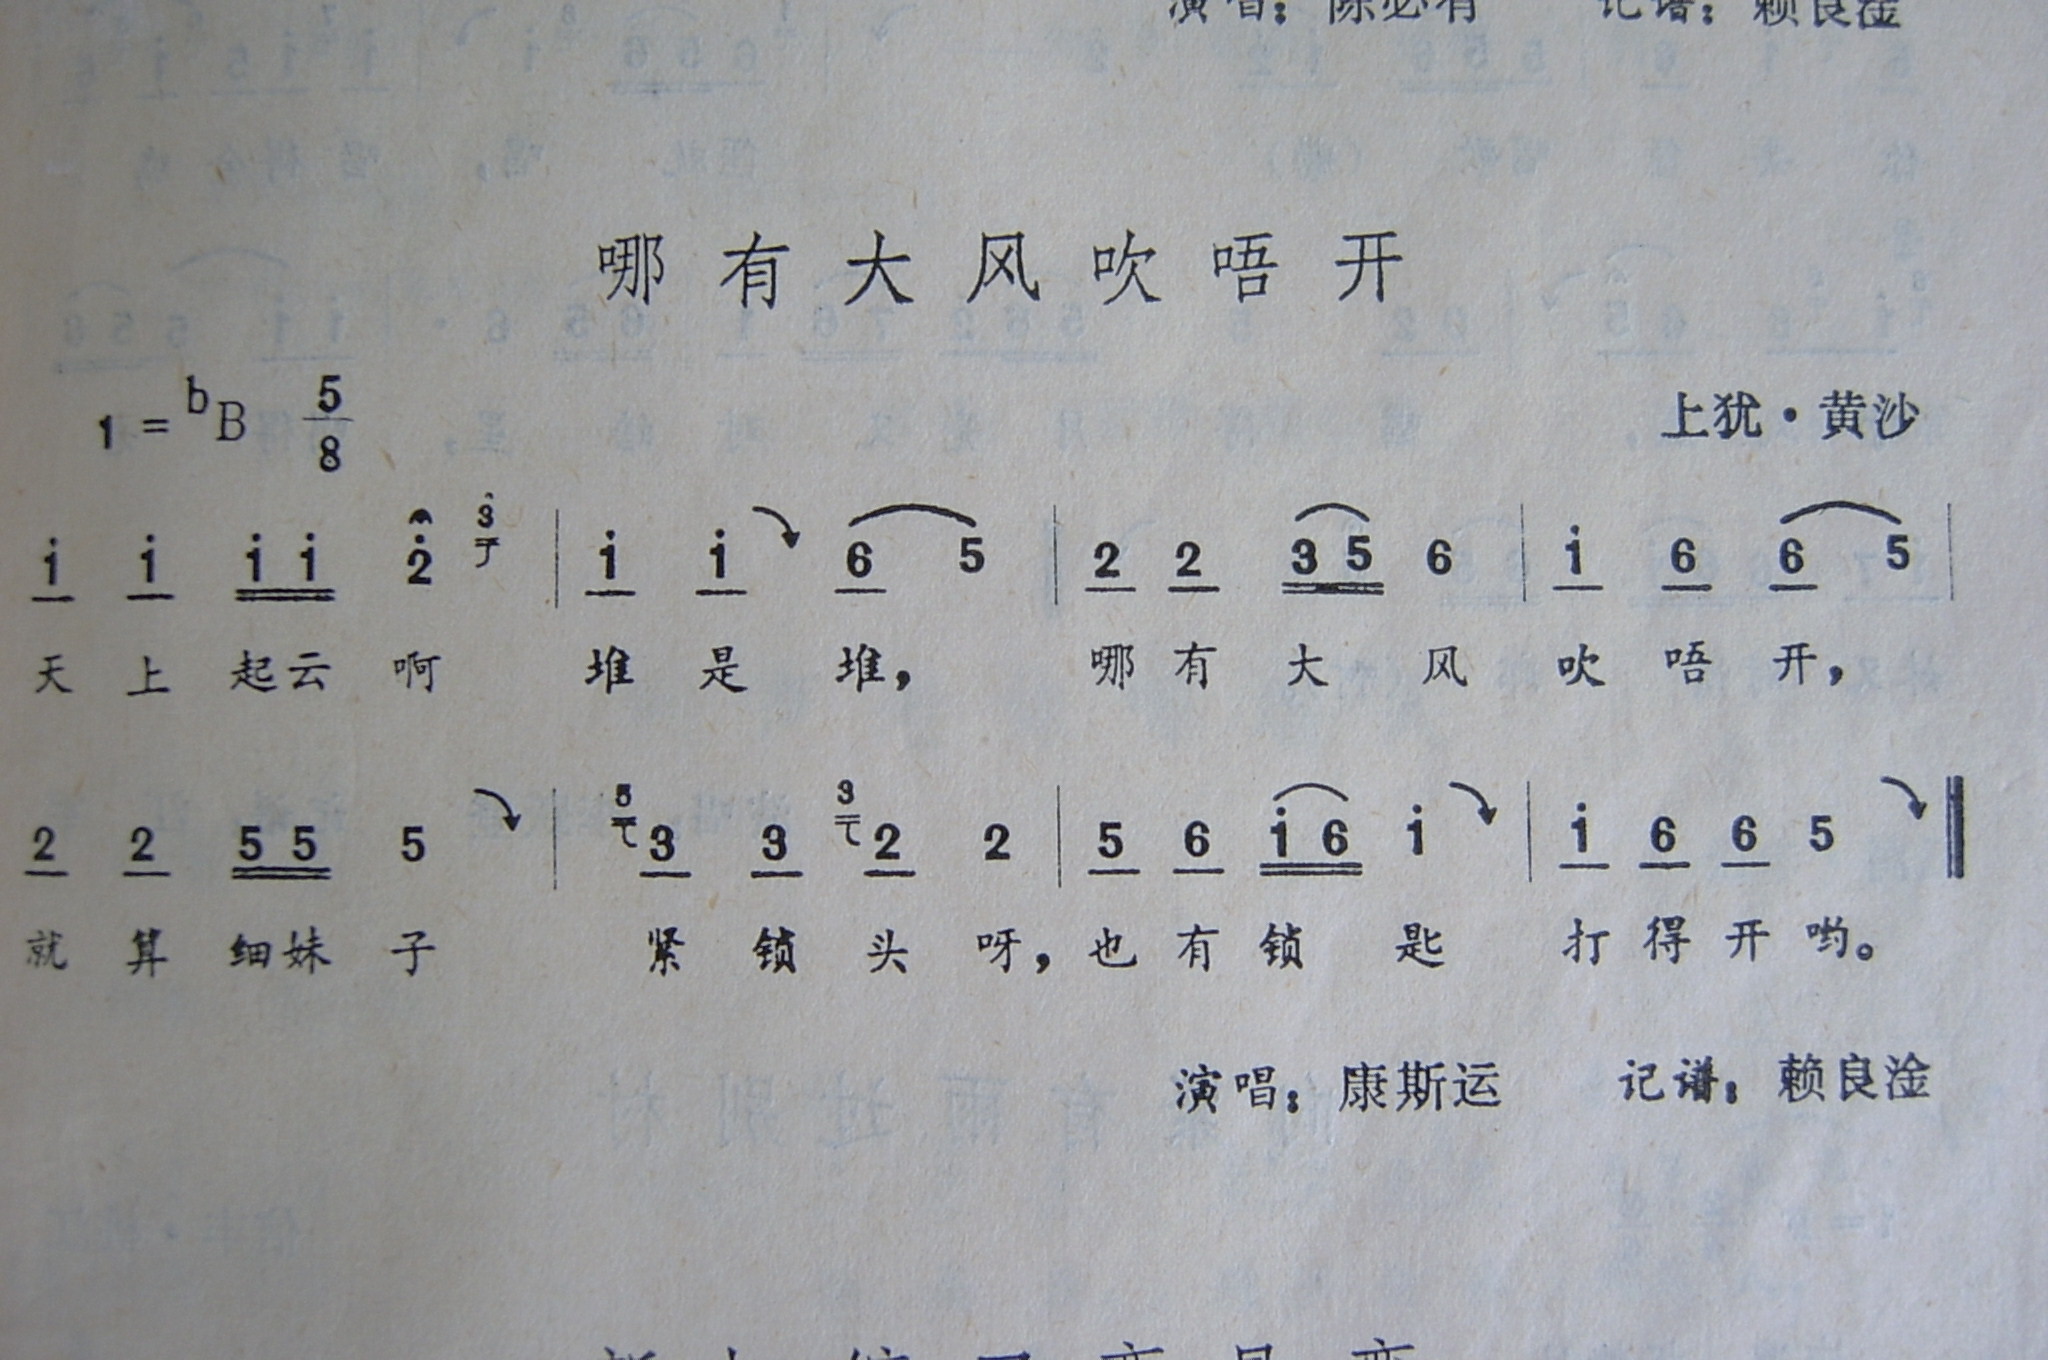 演唱：陈必有 记谱：赖良淦
哪有大风吹唔开
1=bB 5/8
上犹·黄沙
i i i i 2 3 | i i 6 5 | 2 2 3 5 6 | i 6 6 5 |
天上起云啊 堆是堆， 哪有大风 吹唔开，
2 2 5 5 5 | 5 3 3 3 2 2 | 5 6 i 6 i | i 6 6 5
就算细妹子 紧锁头呀，也有锁匙 打得开哟。
演唱：康斯运 记谱：赖良淦